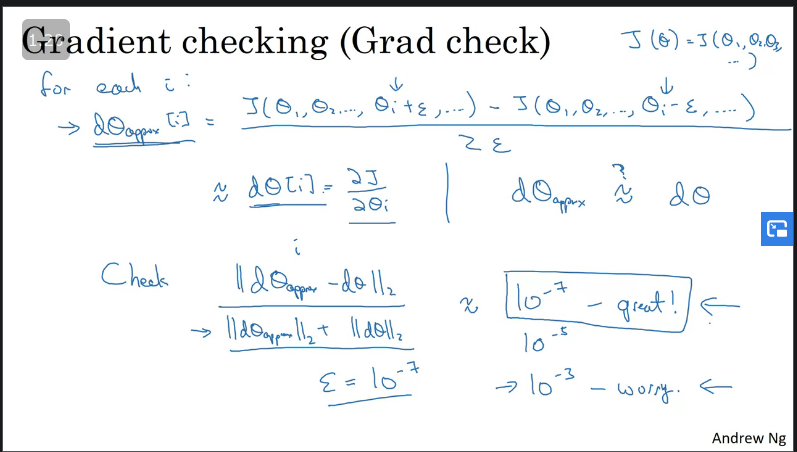 Gradient checking (Grad check)
J(θ) = J(θ₁, θ₂, θ₃, ...)
for each i:
→ dθapprox[i] = J(θ₁, θ₂, ..., θi + ε, ...) - J(θ₁, θ₂, ..., θi - ε, ...)
2ε
≈ dθ[i] = ∂J/∂θi | dθapprox ≈? dθ
i
Check ||dθapprox - dθ||₂ ≈ 10⁻⁷ - great! ←
→ ||dθapprox||₂ + ||dθ||₂ 10⁻⁵
ε = 10⁻⁷ → 10⁻³ - worry. ←
Andrew Ng